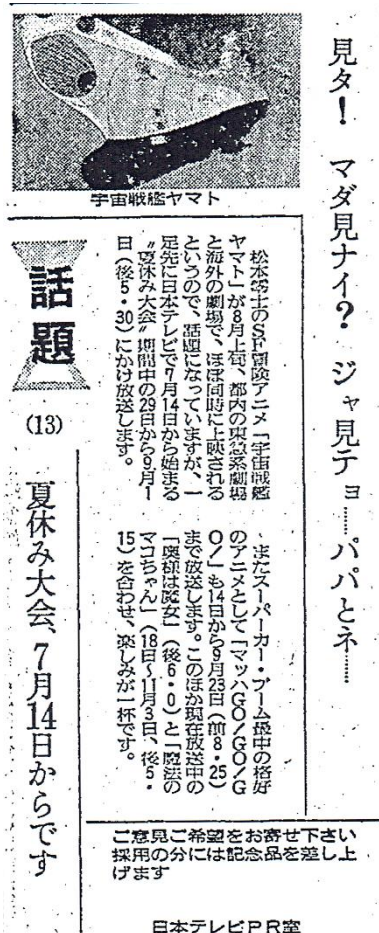 見タ！　マダ見ナイ？　ジャ見テョ……パパとネ……
宇宙戦艦ヤマト
話題
(13)
夏休み大会、7月14日からです
松本零士のSF冒険アニメ「宇宙戦艦
ヤマト」が8月上旬、都内の東急系劇場
と海外の劇場で、ほぼ同時に上映される
というので、話題になっていますが、一
足先に日本テレビで7月14日から始まる
〝夏休み大会〟期間中の29日から9月1
日（後5・30）にかけ放送します。
またスーパーカー・ブーム最中の格好
のアニメとして「マッハGO／GO／G
O／」も14日から9月23日（前8・25）
まで放送します。このほか現在放送中の
「奥様は魔女」（後6・0）と「魔法の
マコちゃん」（18日〜11月3日、後5・
15）を合わせ、楽しみが一杯です。
ご意見ご希望をお寄せ下さい
採用の分には記念品を差し上
げます
日本テレビPR室